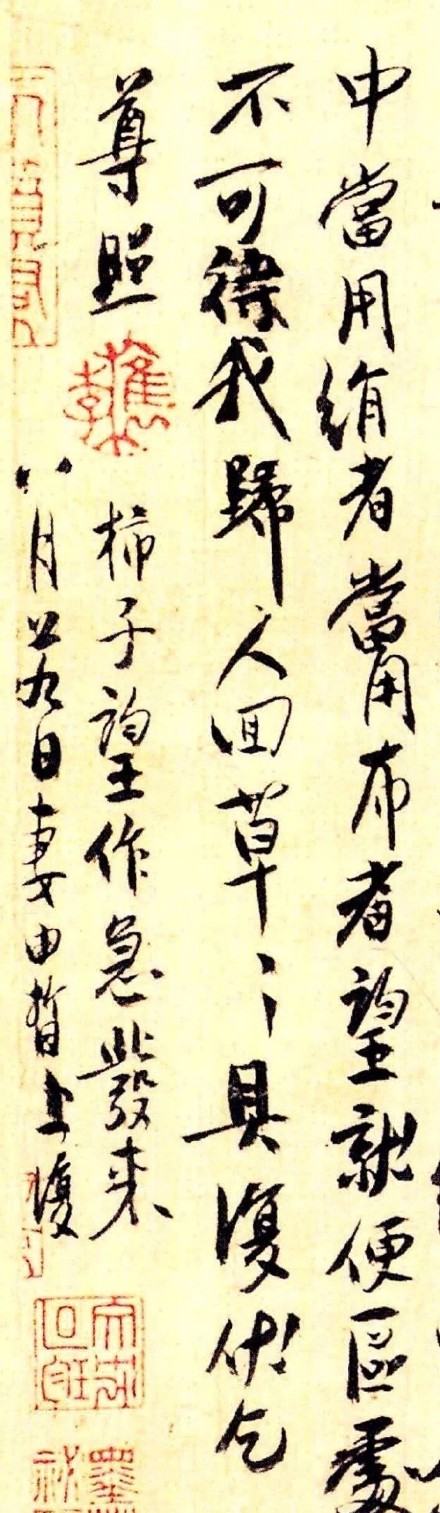 中當用絹者當用布者望就便區處
不可待我歸人回草〻具復伏乞
尊照
柿子望作急發来
八月廿九日妻由晳上復